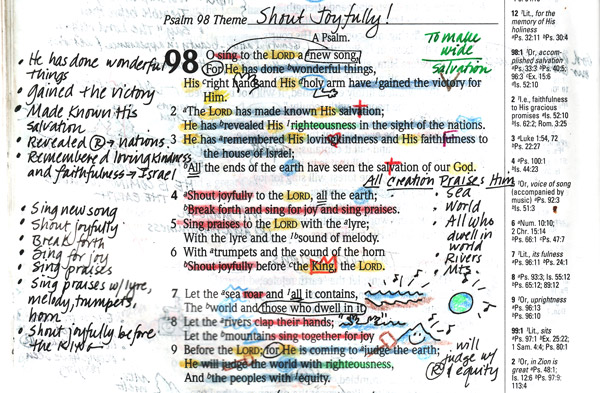 Psalm 98 Theme Shout Joyfully!
A Psalm.
98 O sing to the LORD a new song,
For He has done wonderful things,
His right hand and His holy arm have gained the victory for
Him.
2 The LORD has made known His salvation;
He has revealed His righteousness in the sight of the nations.
3 He has remembered His lovingkindness and His faithfulness to
the house of Israel;
All the ends of the earth have seen the salvation of our God.
4 Shout joyfully to the LORD, all the earth;
Break forth and sing for joy and sing praises.
5 Sing praises to the LORD with the lyre;
With the lyre and the sound of melody.
6 With trumpets and the sound of the horn
Shout joyfully before the King, the LORD.
7 Let the sea roar and all it contains,
The world and those who dwell in it.
8 Let the rivers clap their hands;
Let the mountains sing together for joy
9 Before the LORD; for He is coming to judge the earth;
He will judge the world with righteousness,
And the peoples with equity.
• He has done wonderful
things
• Gained the victory
• Made Known His
salvation
• Revealed R → nations
• Remembered lovingkindness
and faithfulness → Israel
• Sing new song
• Shout joyfully
• Break forth
• Sing for joy
• Sing praises
• Sing praises w/ lyre,
melody, trumpets,
horn
• Shout joyfully before
the King
To make
wide
Salvation
All Creation Praises Him
• Sea
• World
• All who
dwell in
world
• Rivers
• Mts.
• will
judge w/
R equity
12 Lit., for the
memory of His
holiness
Ps. 32:11 Ps. 30:4
98:1 Or, accom-
plished salvation
Ps. 33:3 Ps. 40:5;
96:3 Ex. 15:6
Is. 52:10
2 I.e., faithfulness
to His gracious
promises Is. 52:10
Is. 62:2; Rom. 3:25
3 Luke 1:54, 72
Ps. 22:27
4 Ps. 100:1
Is. 44:23
5 Or, voice of song
(accompanied by
music) Ps. 92:3
Is. 51:3
6 Num. 10:10;
2 Chr. 15:14
Ps. 66:1 Ps. 47:7
7 Lit., its fulness
Ps. 96:11 Ps. 24:1
8 Ps. 93:3; Is. 55:12
Ps. 65:12; 89:12
9 Or, uprightness
Ps. 96:13
Ps. 96:10
99:1 Lit., sits
Ps. 97:1 Ex. 25:22;
1 Sam. 4:4; Ps. 80:1
2 Or, in Zion is
great Ps. 48:1;
Is. 12:6 Ps. 97:9;
113:4